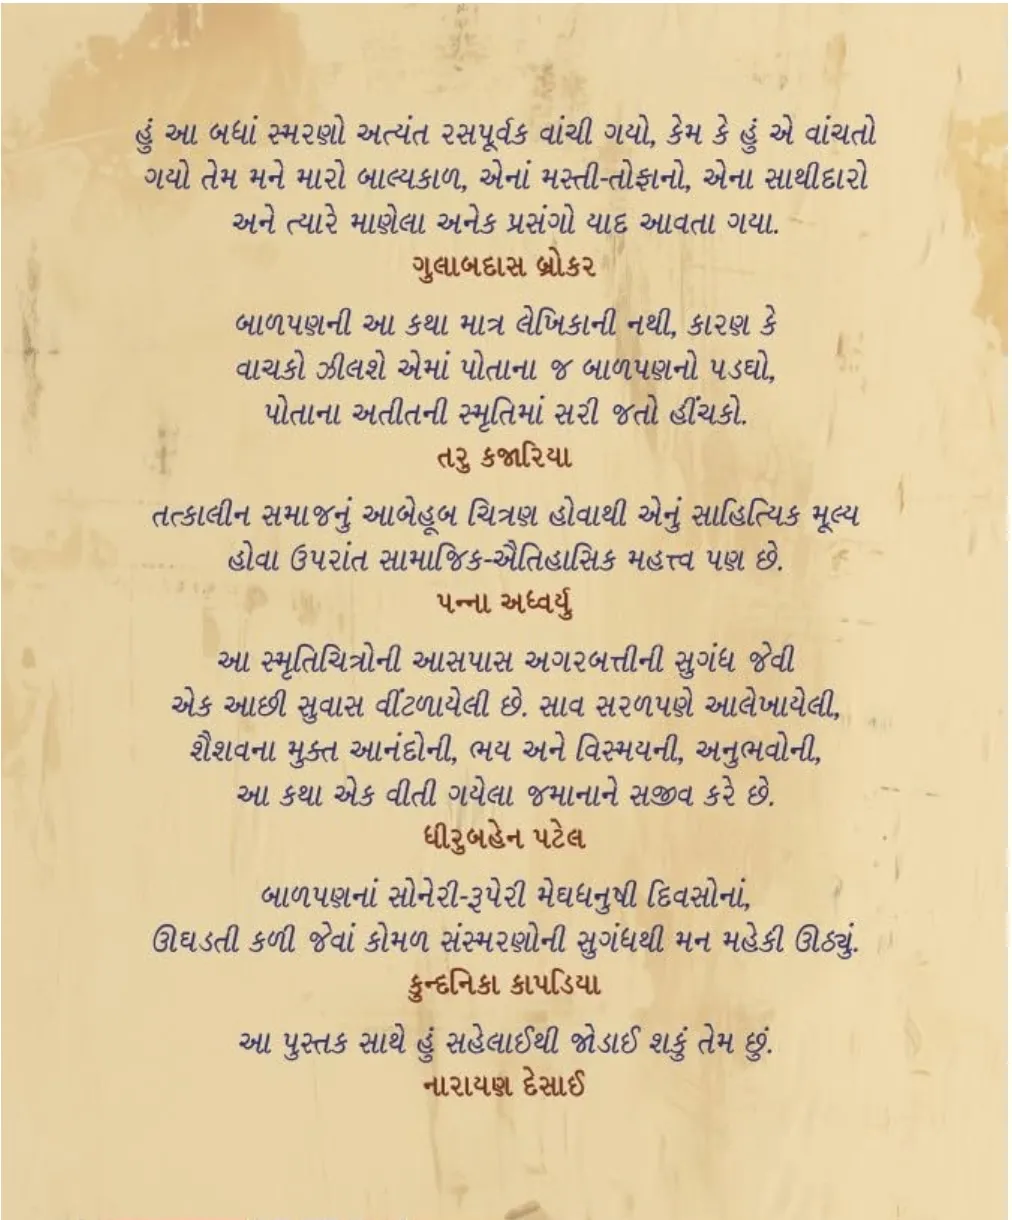 હું આ બધાં સ્મરણો અત્યંત રસપૂર્વક વાંચી ગયો, કેમ કે હું એ વાંચતો
ગયો તેમ મને મારો બાલ્યકાળ, એનાં મસ્તી-તોફાનો, એના સાથીદારો
અને ત્યારે માણેલા અનેક પ્રસંગો યાદ આવતા ગયા.
ગુલાબદાસ બ્રોકર
બાળપણની આ કથા માત્ર લેખિકાની નથી, કારણ કે
વાચકો ઝીલશે એમાં પોતાના જ બાળપણનો પડઘો,
પોતાના અતીતની સ્મૃતિમાં સરી જતો હીંચકો.
તરુ કજારિયા
તત્કાલીન સમાજનું આબેહૂબ ચિત્રણ હોવાથી એનું સાહિત્યિક મૂલ્ય
હોવા ઉપરાંત સામાજિક-ઐતિહાસિક મહત્ત્વ પણ છે.
પન્ના અધ્વર્યુ
આ સ્મૃતિચિત્રોની આસપાસ અગરબત્તીની સુગંધ જેવી
એક આછી સુવાસ વીંટળાયેલી છે. સાવ સરળપણે આલેખાયેલી,
શૈશવના મુક્ત આનંદોની, ભય અને વિસ્મયની, અનુભવોની,
આ કથા એક વીતી ગયેલા જમાનાને સજીવ કરે છે.
ધીરુબહેન પટેલ
બાળપણનાં સોનેરી-રૂપેરી મેઘધનુષી દિવસોનાં,
ઊઘડતી કળી જેવાં કોમળ સંસ્મરણોની સુગંધથી મન મહેકી ઊઠ્યું.
કુન્દનિકા કાપડિયા
આ પુસ્તક સાથે હું સહેલાઈથી જોડાઈ શકું તેમ છું.
નારાયણ દેસાઈ